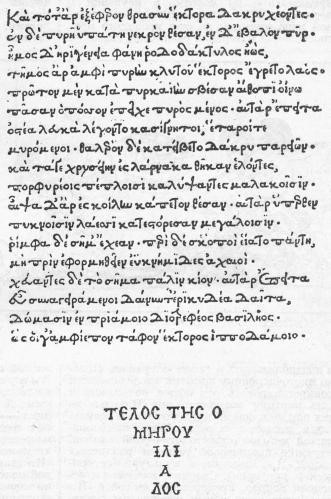 Καὶ τότ' ἄρ' ἐξέφερον θρασὺν ἕκτορα δακρυχέοντες·
ἐν δὲ πυρῇ ὑπάτῃ νεκρὸν θέσαν, ἐν δ' ἔβαλον πῦρ·
ἦμος δ' ἠριγένεια φάνη ῥοδοδάκτυλος ἠώς,
τῆμος ἄρ' ἀμφὶ πυρὴν κλυτοῦ ἕκτορος ἔγρετο λαός·
πρῶτον μὲν κατὰ πυρκαϊὴν σβέσαν αἴθοπι οἴνῳ
πᾶσαν ὁπόσσον ἐπέσχε πυρὸς μένος· αὐτὰρ ἔπειτα
ὀστέα λευκὰ λέγοντο κασίγνητοι, ἕταροί τε
μυρόμενοι· θαλερὸν δὲ κατείβετο δάκρυ παρειῶν·
καὶ τά γε χρυσείην ἐς λάρνακα θῆκαν ἑλόντες,
πορφυρέοις πέπλοισι καλύψαντες μαλακοῖσιν·
αἶψα δ' ἄρ' ἐς κοίλην κάπετον θέσαν· αὐτὰρ ὕπερθεν
πυκνοῖσιν λάεσσι κατεστόρεσαν μεγάλοισιν·
ῥίμφα δὲ σῆμ' ἔχεαν· περὶ δὲ σκοποὶ εἵατο πάντῃ,
μὴ πρὶν ἐφορμηθεῖεν ἐϋκνήμιδες ἀχαιοί·
χεύαντες δὲ τὸ σῆμα πάλιν κίον· αὐτὰρ ἔπειτα
εὖ συναγειράμενοι δαίνυντ' ἐρικυδέα δαῖτα,
δώμασιν ἐν πριάμοιο διοτρεφέος βασιλῆος·
ὣς οἵγ' ἀμφίεπον τάφον ἕκτορος ἱπποδάμοιο·
ΤΕΛΟΣ ΤΗΣ Ο
ΜΗΡΟΥ
ΙΛΙ
Α
ΔΟΣ